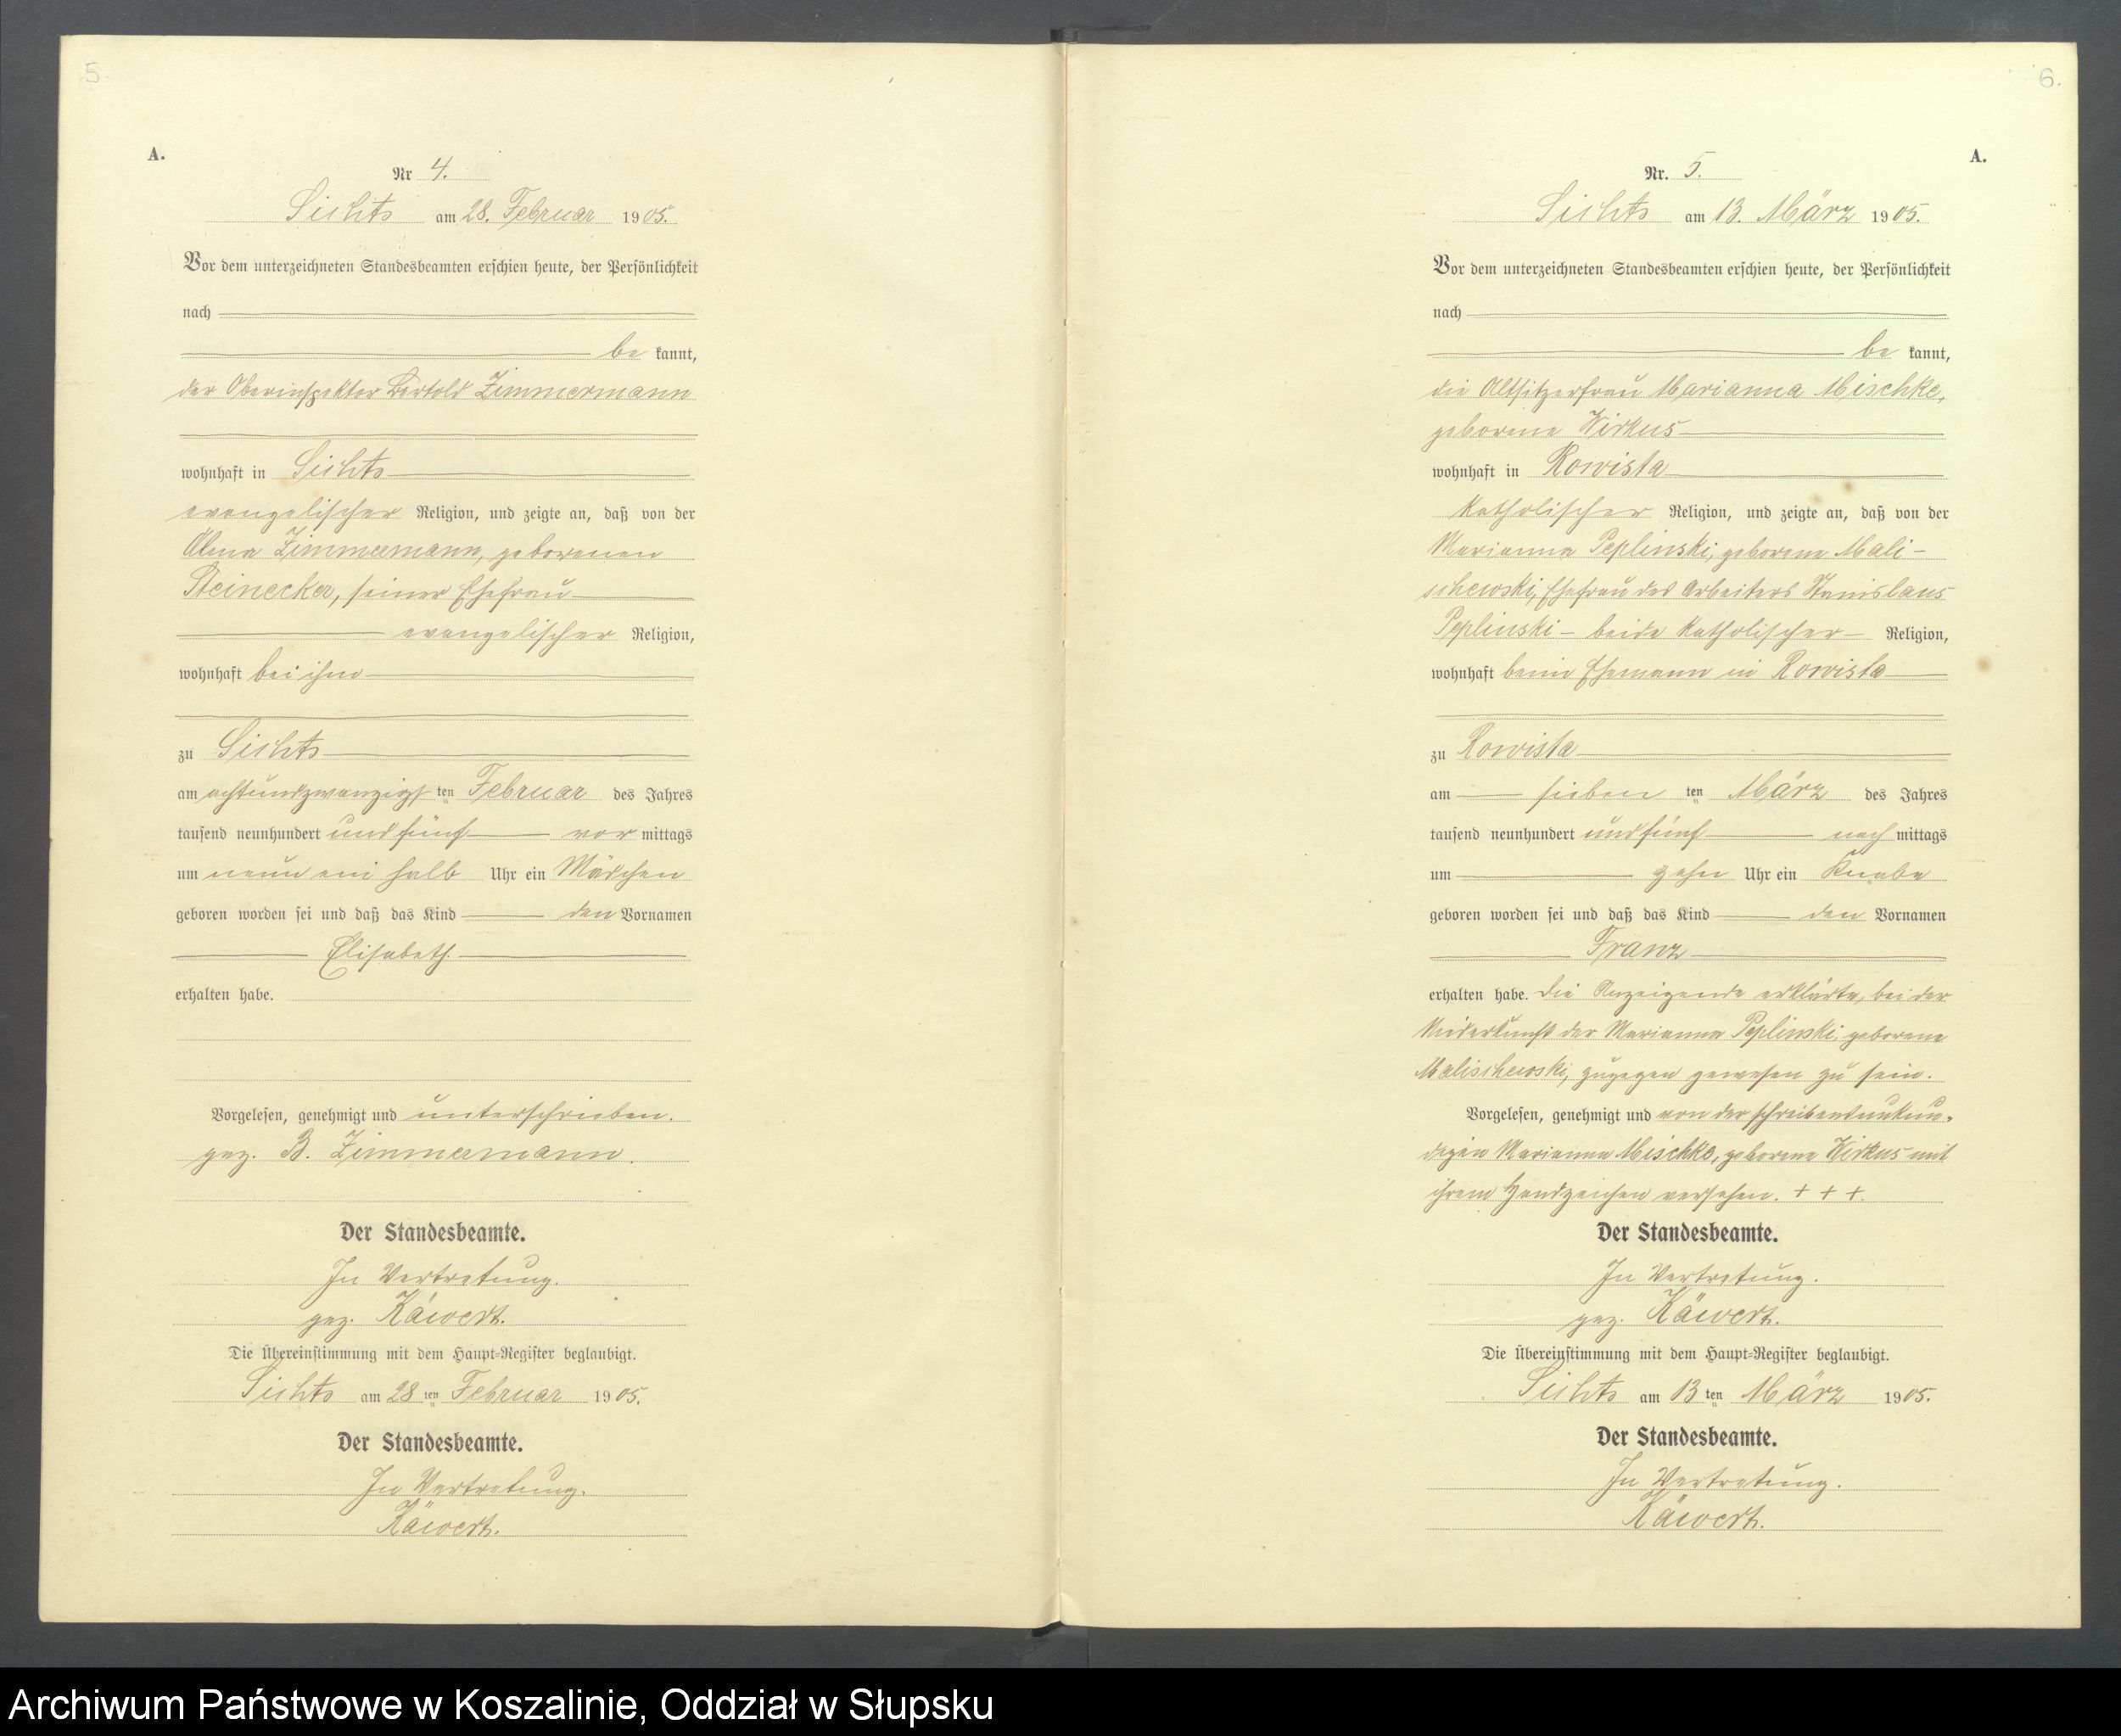 5.
A.
Nr 4.
Sichts am 28. Februar 1905.
Vor dem unterzeichneten Standesbeamten erschien heute, der Persönlichkeit
nach
be kannt,
der Oberinspektor Bertold Zimmermann
wohnhaft in Sichts
evangelischer Religion, und zeigte an, daß von der
Alma Zimmermann, geborenen
Steinecker, seiner Ehefrau
evangelischer Religion,
wohnhaft bei ihm
zu Sichts
am achtundzwanzigsten Februar des Jahres
tausend neunhundert und fünf vor mittags
um neun ein halb Uhr ein Mädchen
geboren worden sei und daß das Kind den Vornamen
Elisabeth
erhalten habe.
Vorgelesen, genehmigt und unterschrieben.
gez. B. Zimmermann.
Der Standesbeamte.
In Vertretung.
gez. Käwert.
Die Übereinstimmung mit dem Haupt-Register beglaubigt.
Sichts am 28ten Februar 1905.
Der Standesbeamte.
In Vertretung.
Käwert.
6.
A.
Nr. 5.
Sichts am 13. März 1905.
Vor dem unterzeichneten Standesbeamten erschien heute, der Persönlichkeit
nach
be kannt,
die Altsitzerfrau Marianna Mischke,
geborene Wirkus
wohnhaft in Rowista
katholischer Religion, und zeigte an, daß von der
Marianna Peplinski, geborene Mali-
schewski, Ehefrau des Arbeiters Stanislaus
Peplinski - beide katholischer - Religion,
wohnhaft beim Ehemann in Rowista
zu Rowista
am sieben ten März des Jahres
tausend neunhundert und fünf nach mittags
um zehn Uhr ein Knabe
geboren worden sei und daß das Kind den Vornamen
Franz
erhalten habe. Die Anzeigende erklärte, bei der
Niederkunft der Marianna Peplinski, geborene
Malischewski, zugegen gewesen zu sein.
Vorgelesen, genehmigt und von der schreibensunkun-
digen Marianna Mischke, geborene Wirkus mit
ihrem Handzeichen versehen. + + +.
Der Standesbeamte.
In Vertretung.
gez. Käwert.
Die Übereinstimmung mit dem Haupt-Register beglaubigt.
Sichts am 13ten März 1905.
Der Standesbeamte.
In Vertretung.
Käwert.
Archiwum Państwowe w Koszalinie, Oddział w Słupsku